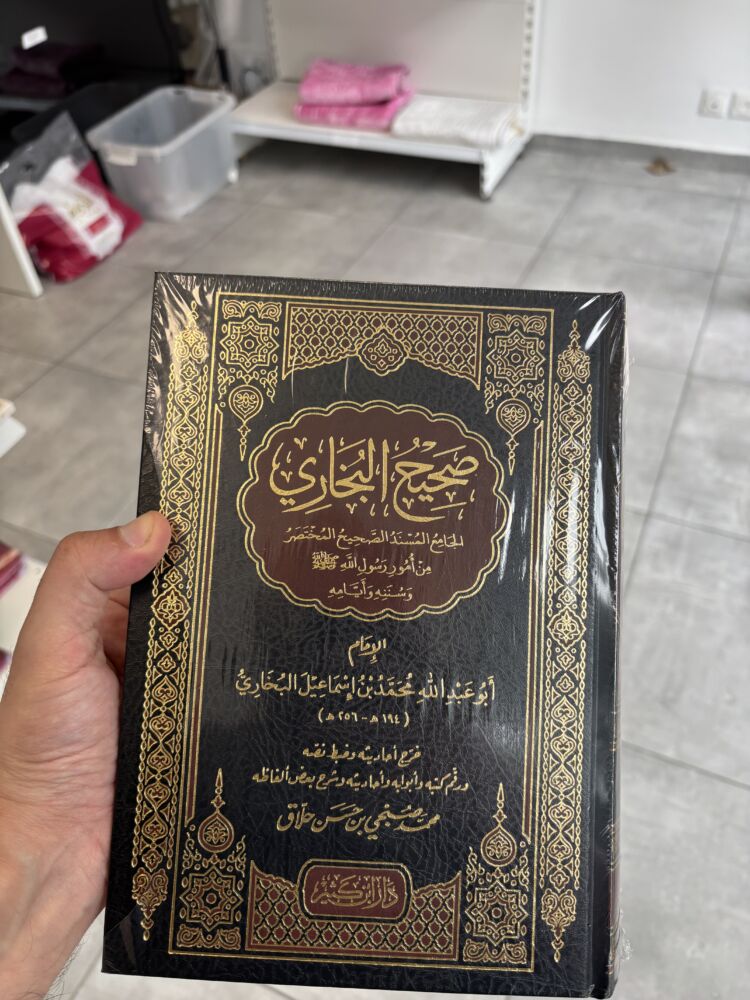 صَحِيحُ البُخَارِي
الجَامِعُ المُسْنَدُ الصَّحِيحُ المُخْتَصَرُ
مِنْ أُمُورِ رَسُولِ اللَّهِ ﷺ
وَسُنَنِهِ وَأَيَّامِهِ
الإِمَام
أَبُو عَبْدِ اللَّهِ مُحَمَّدُ بْنُ إِسْمَاعِيْلَ البُخَارِيُّ
(١٩٤ هـ - ٢٥٦ هـ)
خرّج أحاديثه وضبط نصّه
ورقّم كتبه وأبوابه وأحاديثه وشرح بعض ألفاظه
محمد صبحي بن حسن حلاق
دَارُ ابْنِ كَثِيْر